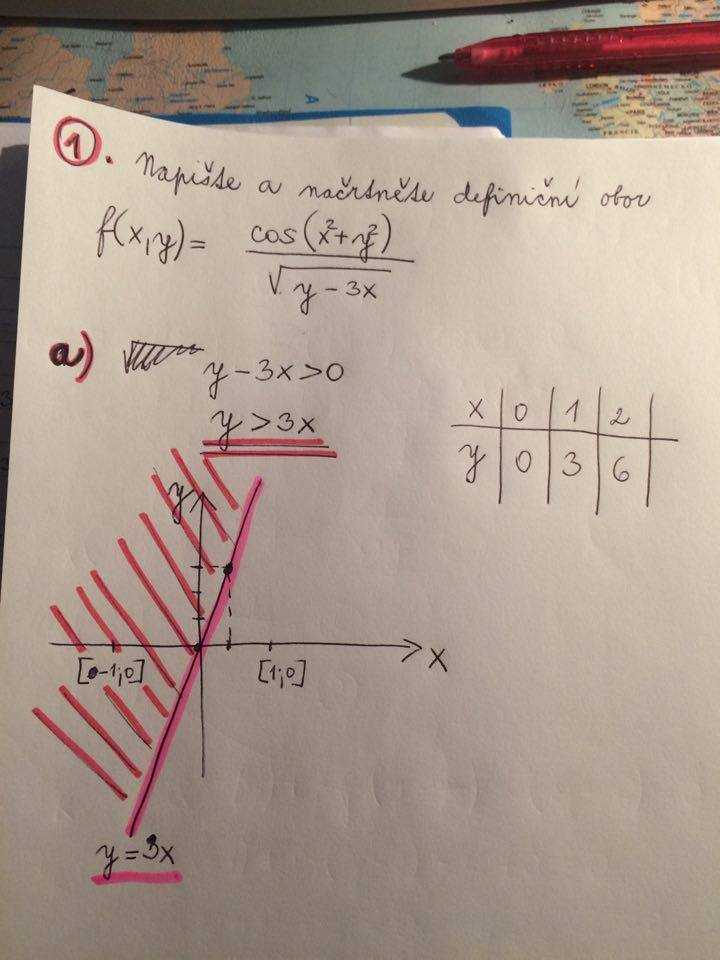 1. Napište a načrtněte definiční obor
f(x,y) = cos(x²+y²) / √(y - 3x)
a) y - 3x > 0
y > 3x
x | 0 | 1 | 2 |
y | 0 | 3 | 6 |
y
x
[-1;0] [1;0]
y = 3x